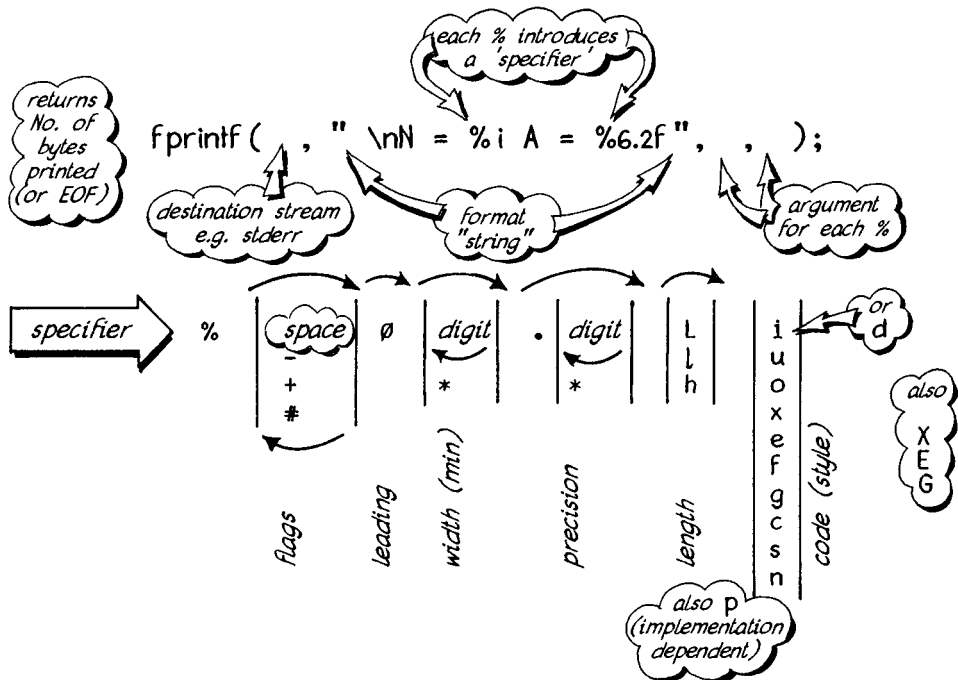 each % introduces
a 'specifier'
returns
No. of
bytes
printed
(or EOF)
fprintf( , " \nN = %i A = %6.2f ", , );
destination stream
e.g. stderr
format
"string"
argument
for each %
specifier
%
space
-
+
#
ø
digit
*
.
digit
*
L
l
h
i
u
o
x
e
f
g
c
s
n
or
d
also
X
E
G
flags
leading
width (min)
precision
length
code (style)
also p
(implementation
dependent)